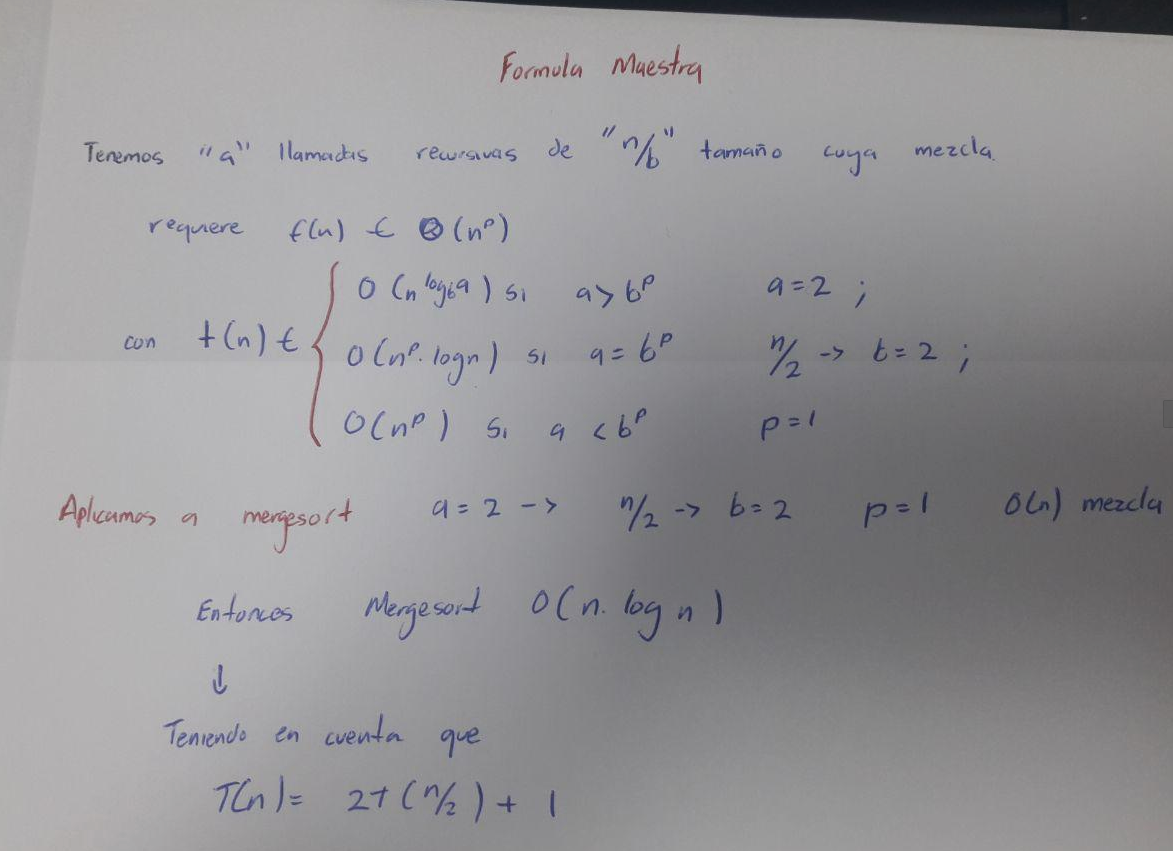 Formula Maestra
Tenemos "a" llamadas recursivas de "n/b" tamaño cuya mezcla.
requiere f(n) ∈ Θ(n^p)
O(n^log_b a) si a > b^p a = 2 ;
con t(n) ∈ { O(n^p · log n) si a = b^p n/2 -> b = 2 ;
O(n^p) si a < b^p p = 1
Aplicamos a mergesort a = 2 -> n/2 -> b = 2 p = 1 O(n) mezcla
Entonces Mergesort O(n. log n)
↓
Teniendo en cuenta que
T(n) = 2T(n/2) + 1